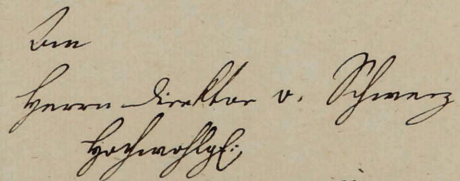 An
Herrn Direktor v. Schwerz
Hochwohlgb: